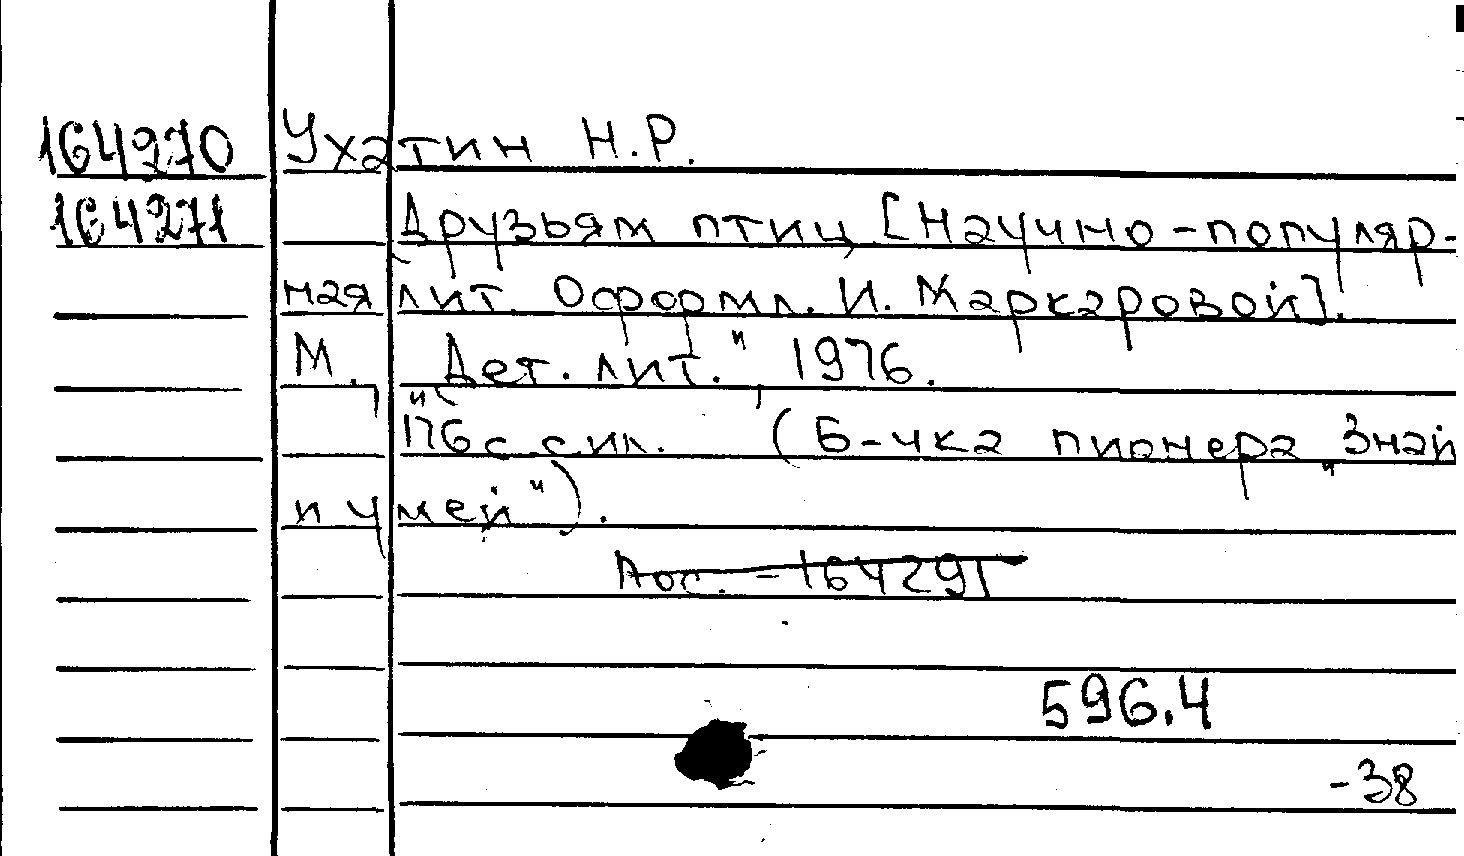 164270 Ухатин Н.Р.
164271 Друзьям птиц [Научно-популяр-
ная лит. Оформл. И. Маркаровой].
М., "Дет. лит.", 1976.
176 с. с ил. (Б-чка пионера „Знай
и умей").
164291
596.4
-38